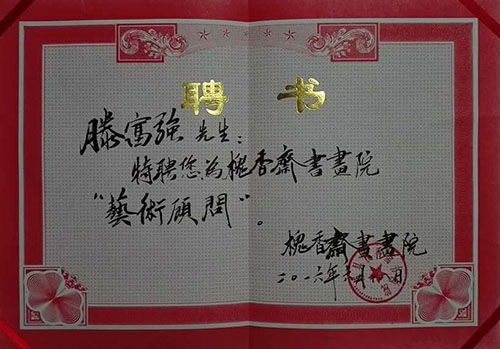 聘书
滕富强 先生:
特聘您为槐香齋書畫院
"藝術顧問"。
槐香齋書畫院
二〇一六年